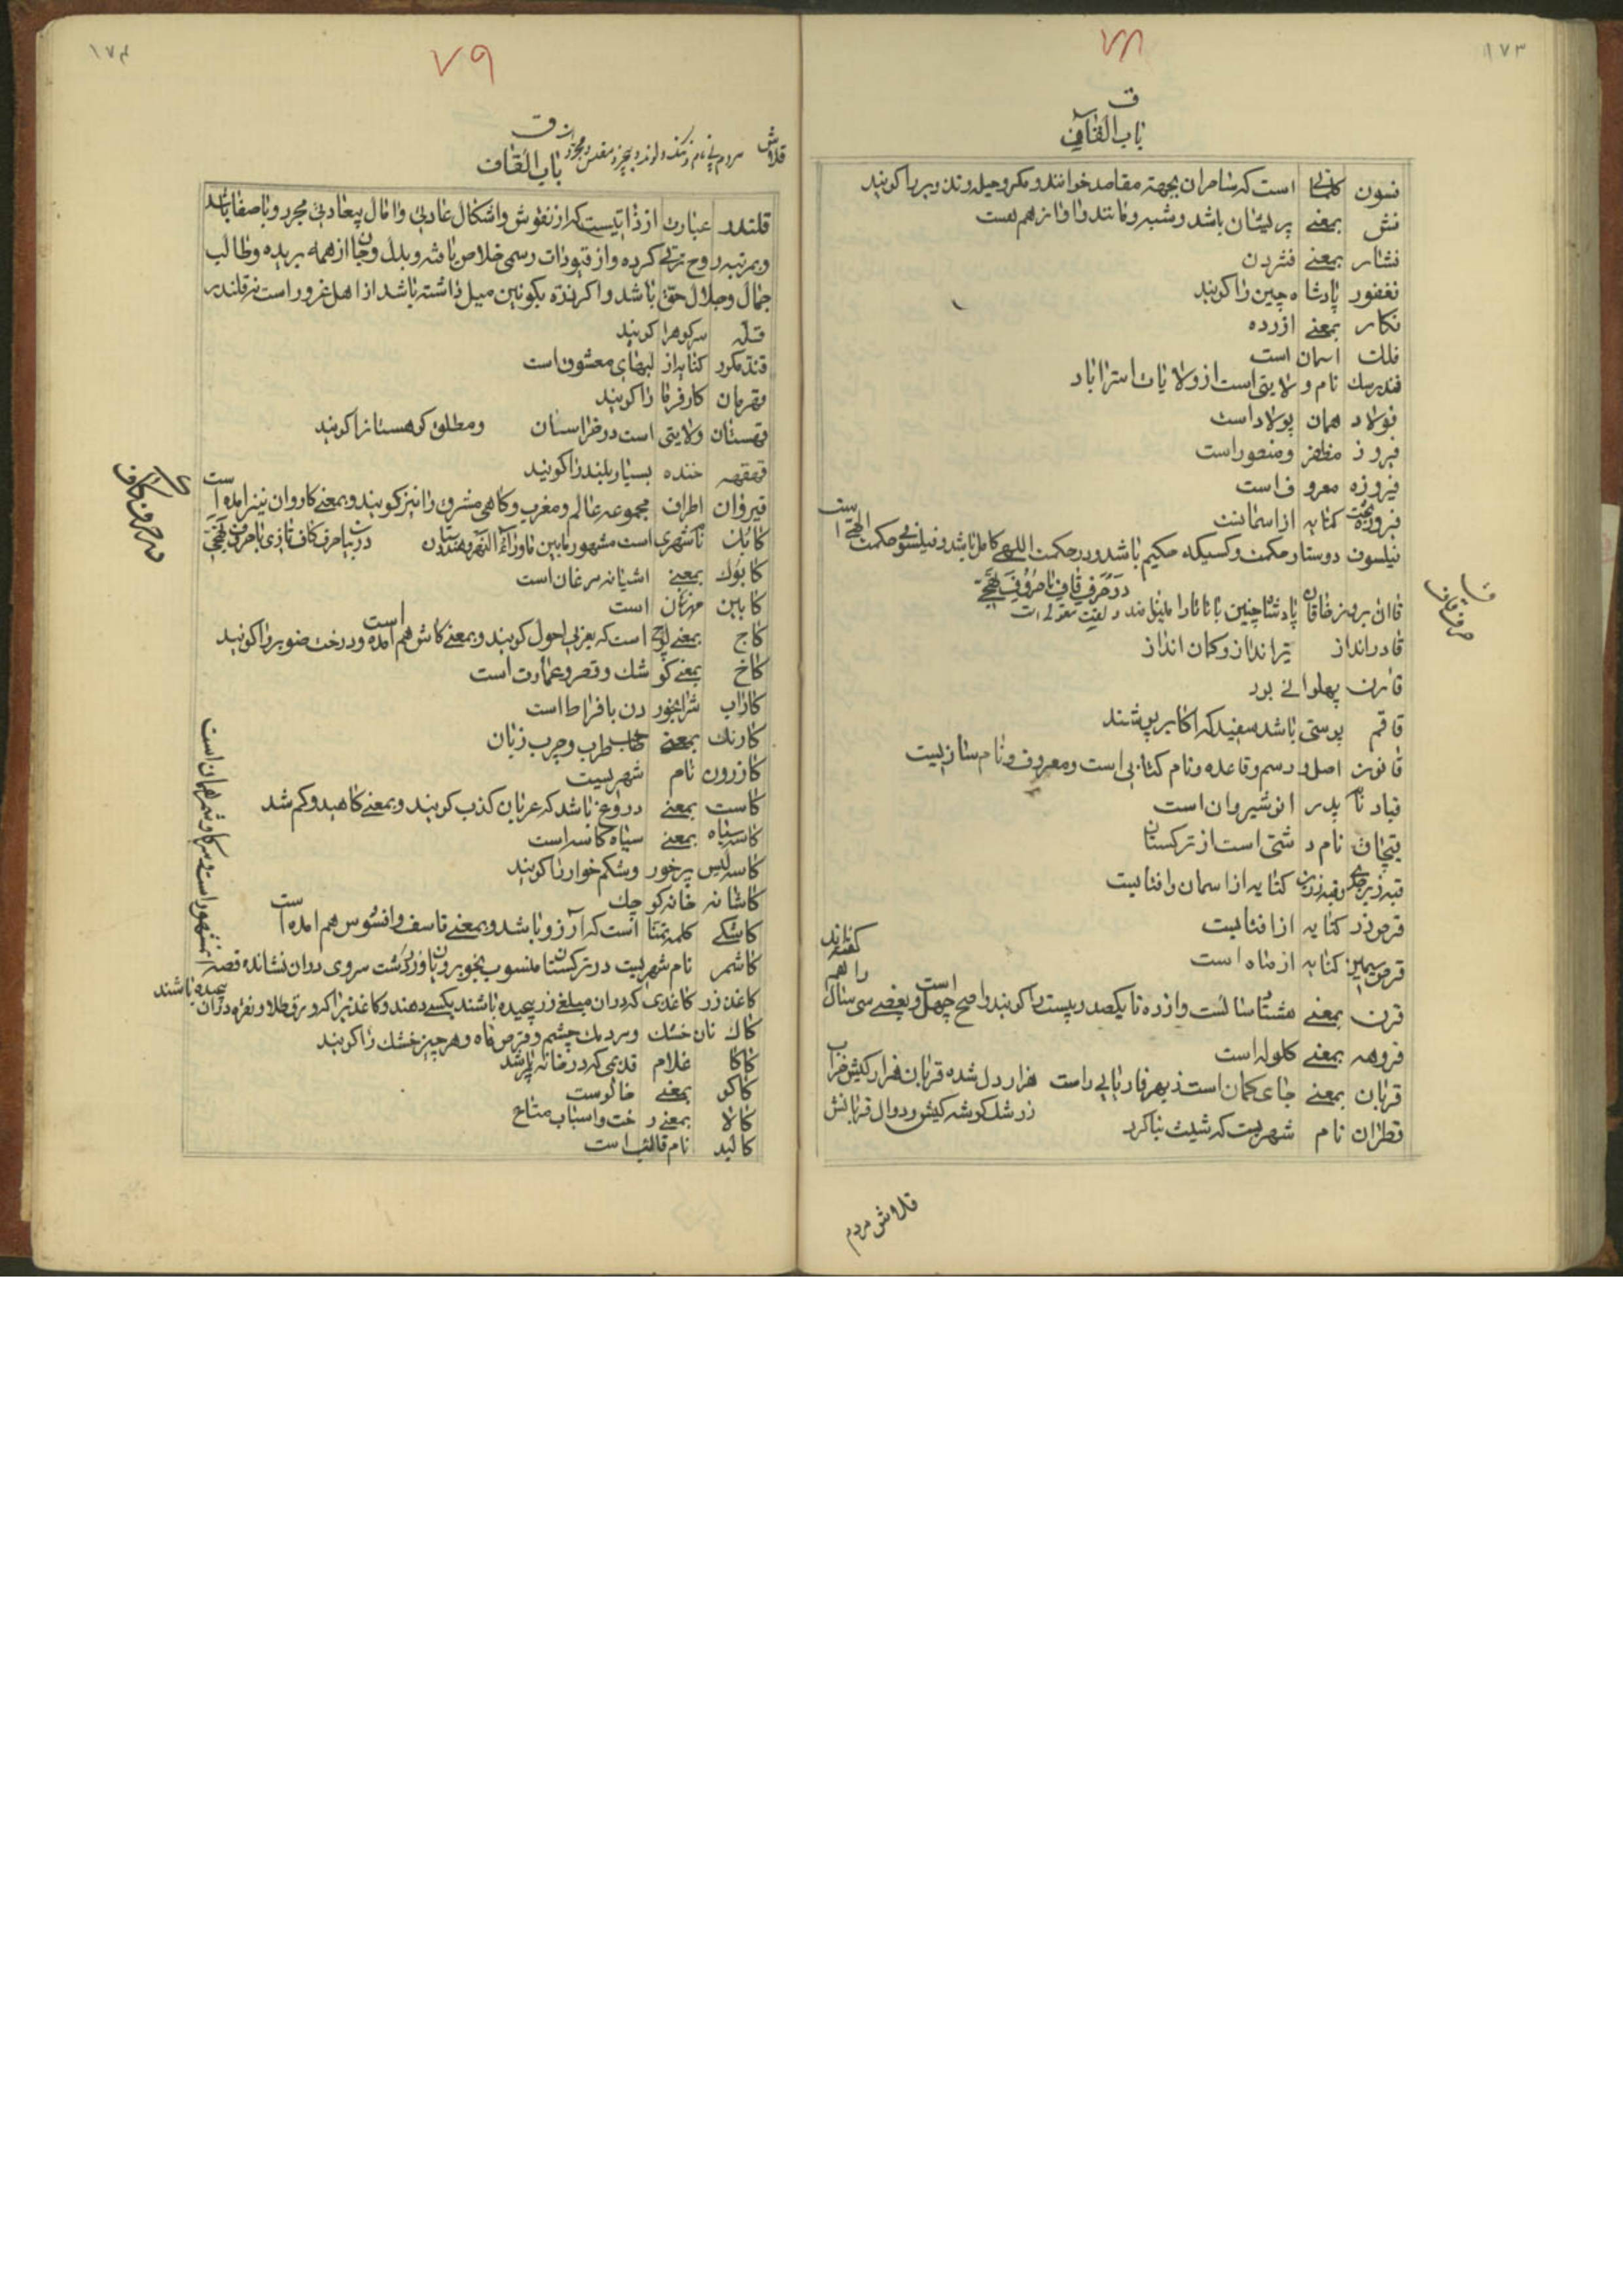 ۱۷۳
۷۸
ق
باب القاف
فسون کلماتی است که ساحران بجهته مقاصد خوانند و مکر و حیله و تزویر را کویند
فش بمعنے پریشان باشد و شبه و مانند و اواز هم هست
فشار بمعنے فشردن
فغفور پادشاه چین را کویند
فکار بمعنے ازرده
فلک اسمان است
فندرسک نام ولایتی است از ولایات استراباد
فولاد همان پولاد است
فیروز مظفر و منصور است
فیروزه معروف است
کنایه از اسمانست
فیلسوف دوستار حکمت و کسیکه حکیم باشد و در حکمت الهی کامل باشد و فیلسوفی حکمت الهی است
در حرف قاف با حروف تهجی
قاان بروزن خاقان پادشاه چین
قادرانداز تیرانداز و کمان انداز
قارن پهلوانے بود
قاقم پوستی باشد سفید که اکابر پوشند
قانون اصل و رسم و قاعده و نام کتابی است و معروف و نام سازیست
قباد نام پدر انوشیروان است
قبچاق نام دشتی است از ترکستان
کنایه از اسمان و افتابست
قرص زر کنایه از افتابست
قرص سیمین کنایه از ماه است
قرن بمعنے هشتاد سالست و از ده تا یکصد و بیست را کویند و اصح چهل است و بعضے سی سال را هم کفته‌اند
قروهه بمعنے کلوله است
قربان بمعنے جای کمان است ظهیر فاریابی راست هزار دل شده قربان هزار کیش خراب
ز رشک کوشه کیش و دوال قربانش
قطران نام شهریست که شیث بنا کرد
قا
حرف قاف
قلاوش مردم
۱۷۴
۷۹
ق
قلاوش مردم بی نام و ننک و لوند و بیچیز و مفلس و مجرد
باب القاف
قلندر عبارت از ذاتیست که از نقوش و اشکال عادتی و امال بیعادتی مجرد و باصفا باشد
و بمرتبه روح ترقی کرده و از قیودات رسمی خلاص یافته و بدل و جان از همه بریده و طالب
جمال و جلال حق باشد و اکر ذره بکونین میل داشته باشد از اهل غرور است نه قلندر
قله سرکوه را کویند
قند مکرر کنایه از لبهای معشوق است
قهرمان کارفرما را کویند
قهستان ولایتی است در خراسان و مطلق کوهستان را کویند
قهقهه خنده بسیار بلند را کویند
قیروان اطراف مجموعه عالم و مغرب و کاهی مشرق را نیز کویند و بمعنے کاروان نیز امده است
کابل نام شهری است مشهور مابین ماوراء النهر و هندوستان در بیان حرف کاف تازی با حروف تهجی
کابوک بمعنے اشیانه مرغان است
کابین مهر زنان است
کاج بمعنے لوچ است که بعربی احول کویند و بمعنے کاش هم امده است و درخت صنوبر را کویند
کاخ بمعنے کوشک و قصر و عمارت است
کاراب شرابخوردن بافراط است
کارنک بمعنے صاحب طرب و چرب زبان
کازرون نام شهریست
کاست بمعنے دروغ باشد که عربان کذب کویند و بمعنے کاهید و کم شد
کاسه سیاه بمعنے سیاه کاسه است
کاسه لیس پرخور و شکم خوار را کویند
کاشانه خانه کوچک
کاشکے کلمه تمنا است که آرزو باشد و بمعنے تاسف و افسوس هم امده است
کاشمر نام شهریست در ترکستان منسوب بخوبرویان و زردشت سروی دران نشانده قصه ان مشهور است و سرکاوشمر همان است
کاغذ زر کاغذی که دران مبلغے زر پیچیده باشند بکسے دهند و کاغذیرا که ورق طلا و نقره دران پیچیده باشند
کاک نان خشک و مردمک چشم و قرص ماه و هر چیز خشک را کویند
کاکا غلام قدیمی که در خانه پیر شد
کاکو بمعنے خالوست
کالا بمعنے رخت و اسباب و متاع
کالبد نام قالب است
ک
در حرف کاف